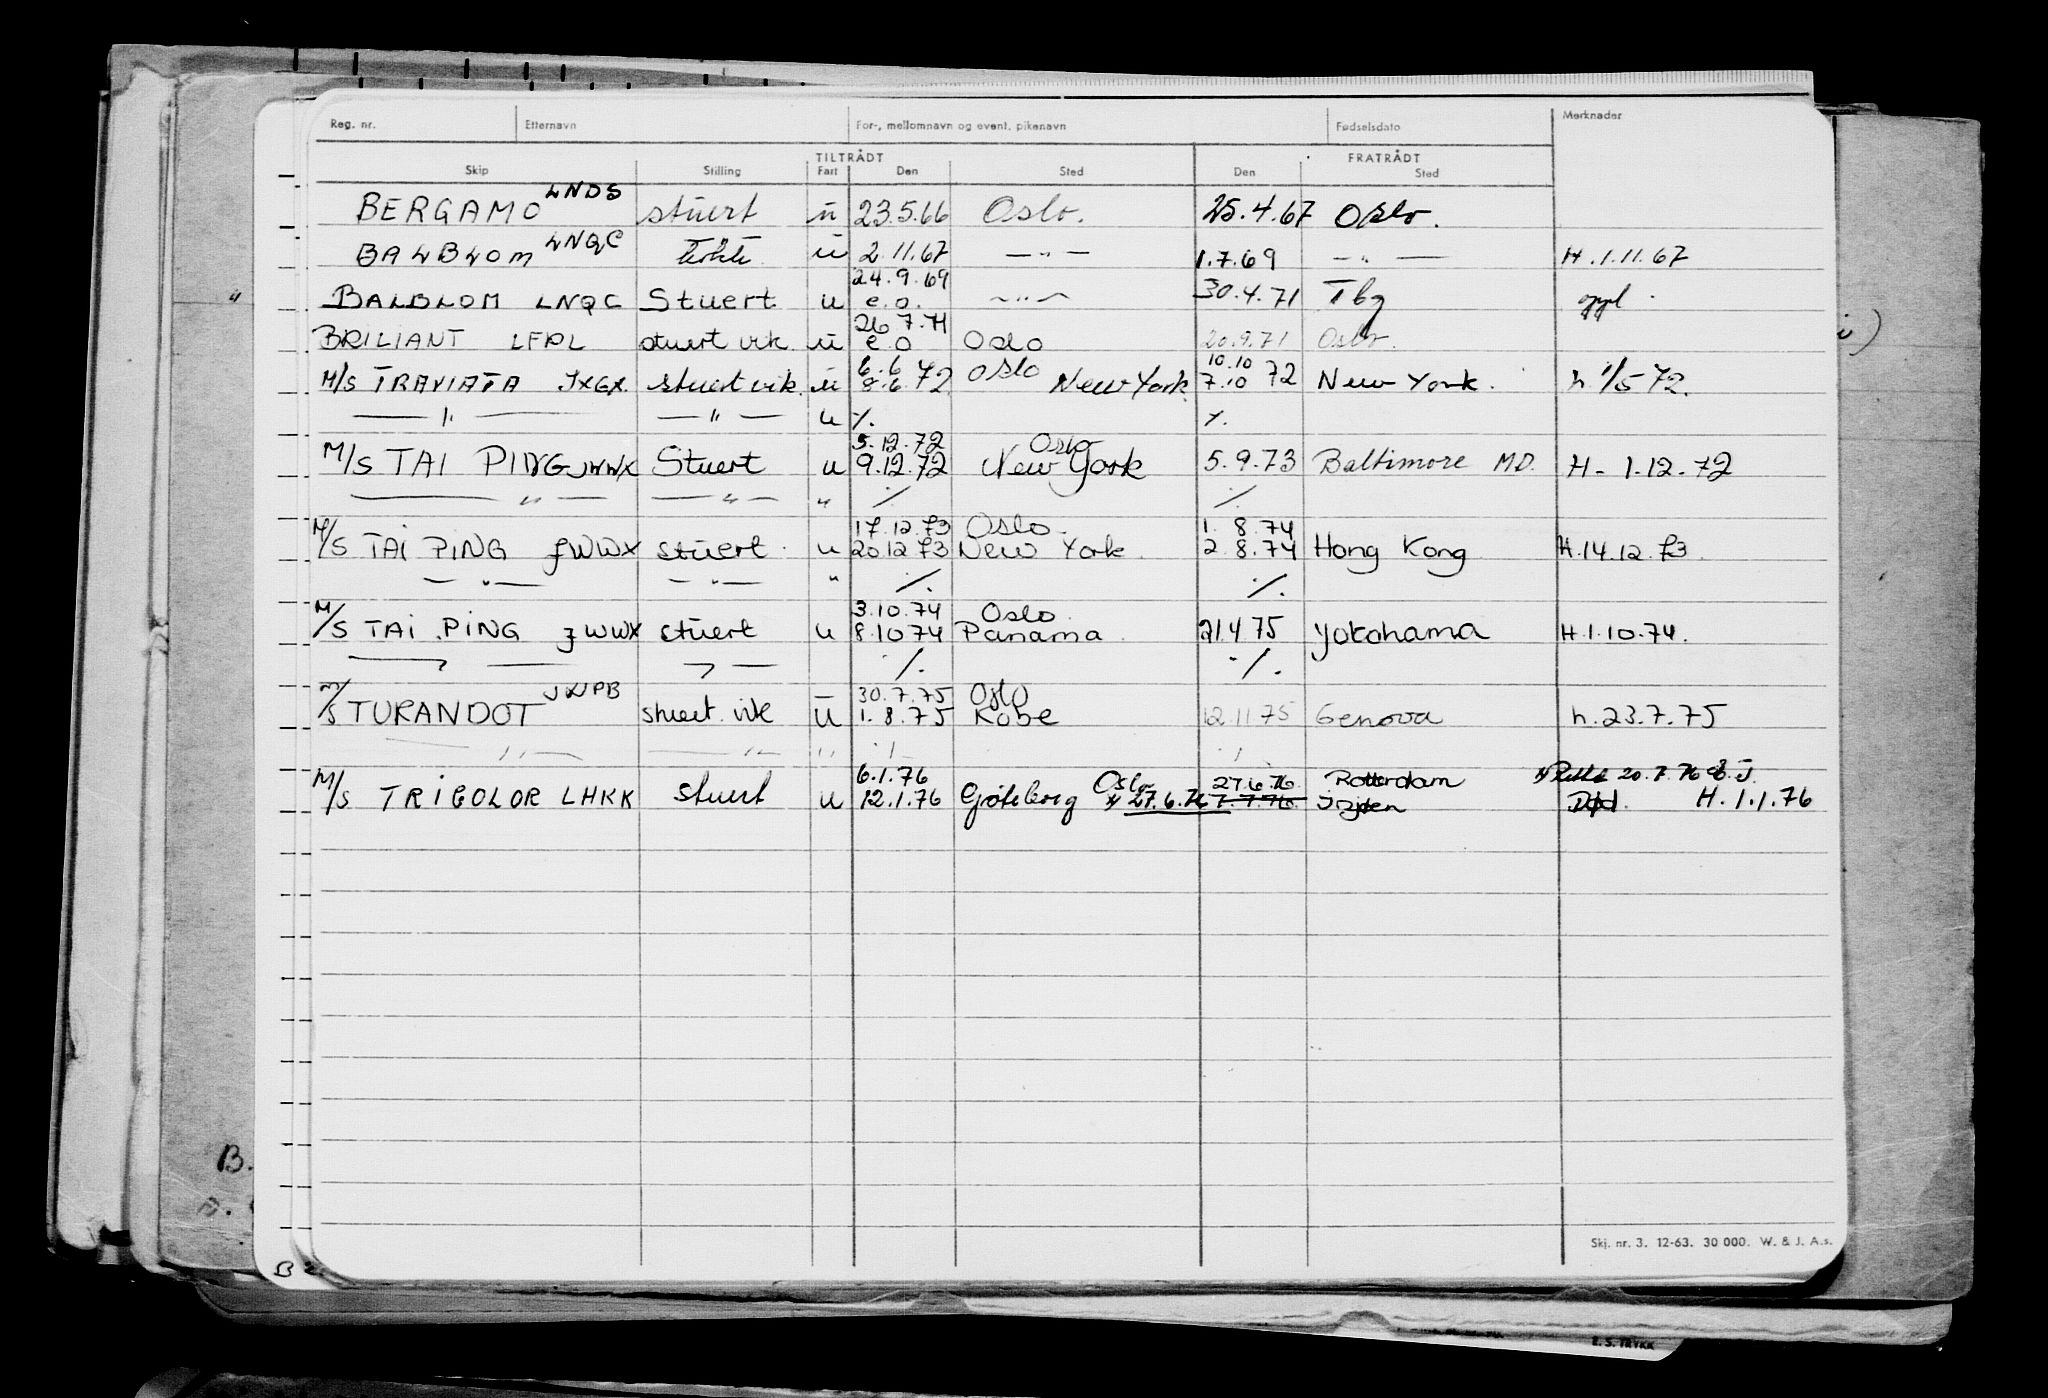 Reg. nr. Etternavn For-, mellomnavn og event. pikenavn Fødselsdato Merknader
TILTRÅDT FRATRÅDT
Skip Stilling Fart Den Sted Den Sted
BERGAMO LNDS stuert u 23.5.66 Oslo. 25.4.67 Oslo.
BALBLOM LNQC u 2.11.67 — " — 1.7.69 — " — H.1.11.67
24.9.69
BALBLOM LNQC Stuert u e.o. — " — 30.4.71 Tbg oppl.
26.7.71
BRILIANT stuert vik. u e.o Oslo 20.9.71 Oslo.
6.6 10.10
M/S TRAVIATA JXGX. stuert vik. u 8.6 72 Oslo New York 7.10 72 New York. h. 1/5 72.
— " — — " — u %. %.
5.12.72 Oslo
M/S TAI PING JWWX Stuert u 9.12.72 New York 5.9.73 Baltimore MD. H. 1.12.72
— " — — " — " % %
17.12.73 Oslo. 1. 8.74
M/S TAI PING JWWX stuert. u 20.12.73 New York. 2.8.74 Hong Kong H.14.12.73.
— " — — " — " %. %.
3.10.74 Oslo.
M/S TAI PING JWWX stuert u 8.10.74 Panama. 21.4.75 Yokohama H.1.10.74.
— " — — " — %. %.
30.7.75 Oslo
M/S TURANDOT JWPB stuert. vik u 1.8.75 Kobe 12.11.75 Genova h.23.7.75
— " — — " — " % %
6.1.76 Oslo 27.6.76 Rotterdam 20.7.76
M/S TRICOLOR LHKK stuert u 12.1.76 Göteborg 27.6.76 7.7.76 H.1.1.76
B.
Skj. nr. 3. 12-63. 30 000. W. & J. A.s.
B 2
E. S. TRYKK